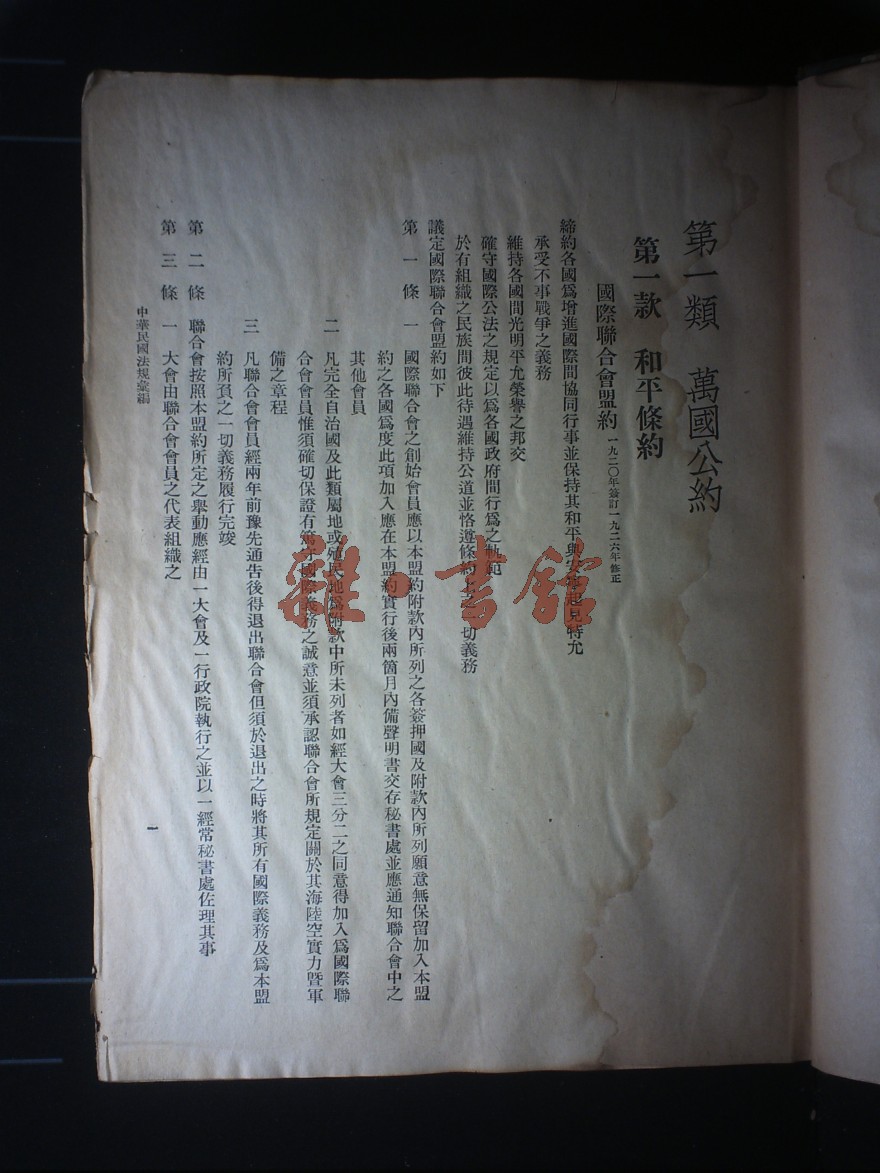 第一類　萬國公約
第一款　和平條約
國際聯合會盟約 一九二〇年簽訂一九二六年修正
締約各國爲增進國際間協同行事並保持其和平與安寧起見特允
承受不事戰爭之義務
維持各國間光明平允榮譽之邦交
確守國際公法之規定以爲各國政府間行爲之軌範
於有組織之民族間彼此待遇維持公道並恪遵條約上之一切義務
議定國際聯合會盟約如下
第一條　一　國際聯合會之創始會員應以本盟約附款內所列之各簽押國及附款內所列願意無保留加入本盟
約之各國爲度此項加入應在本盟約實行後兩箇月內備聲明書交存秘書處並應通知聯合會中之
其他會員
二　凡完全自治國及此類屬地或殖民地爲附款中所未列者如經大會三分二之同意得加入爲國際聯
合會會員惟須確切保證有篤守國際義務之誠意並須承認聯合會所規定關於其海陸空實力暨軍
備之章程
三　凡聯合會會員經兩年前豫先通告後得退出聯合會但須於退出之時將其所有國際義務及爲本盟
約所負之一切義務履行完竣
第二條　聯合會按照本盟約所定之舉動應經由一大會及一行政院執行之並以一經常秘書處佐理其事
第三條　一　大會由聯合會會員之代表組織之
中華民國法規彙編
一
雜·書館